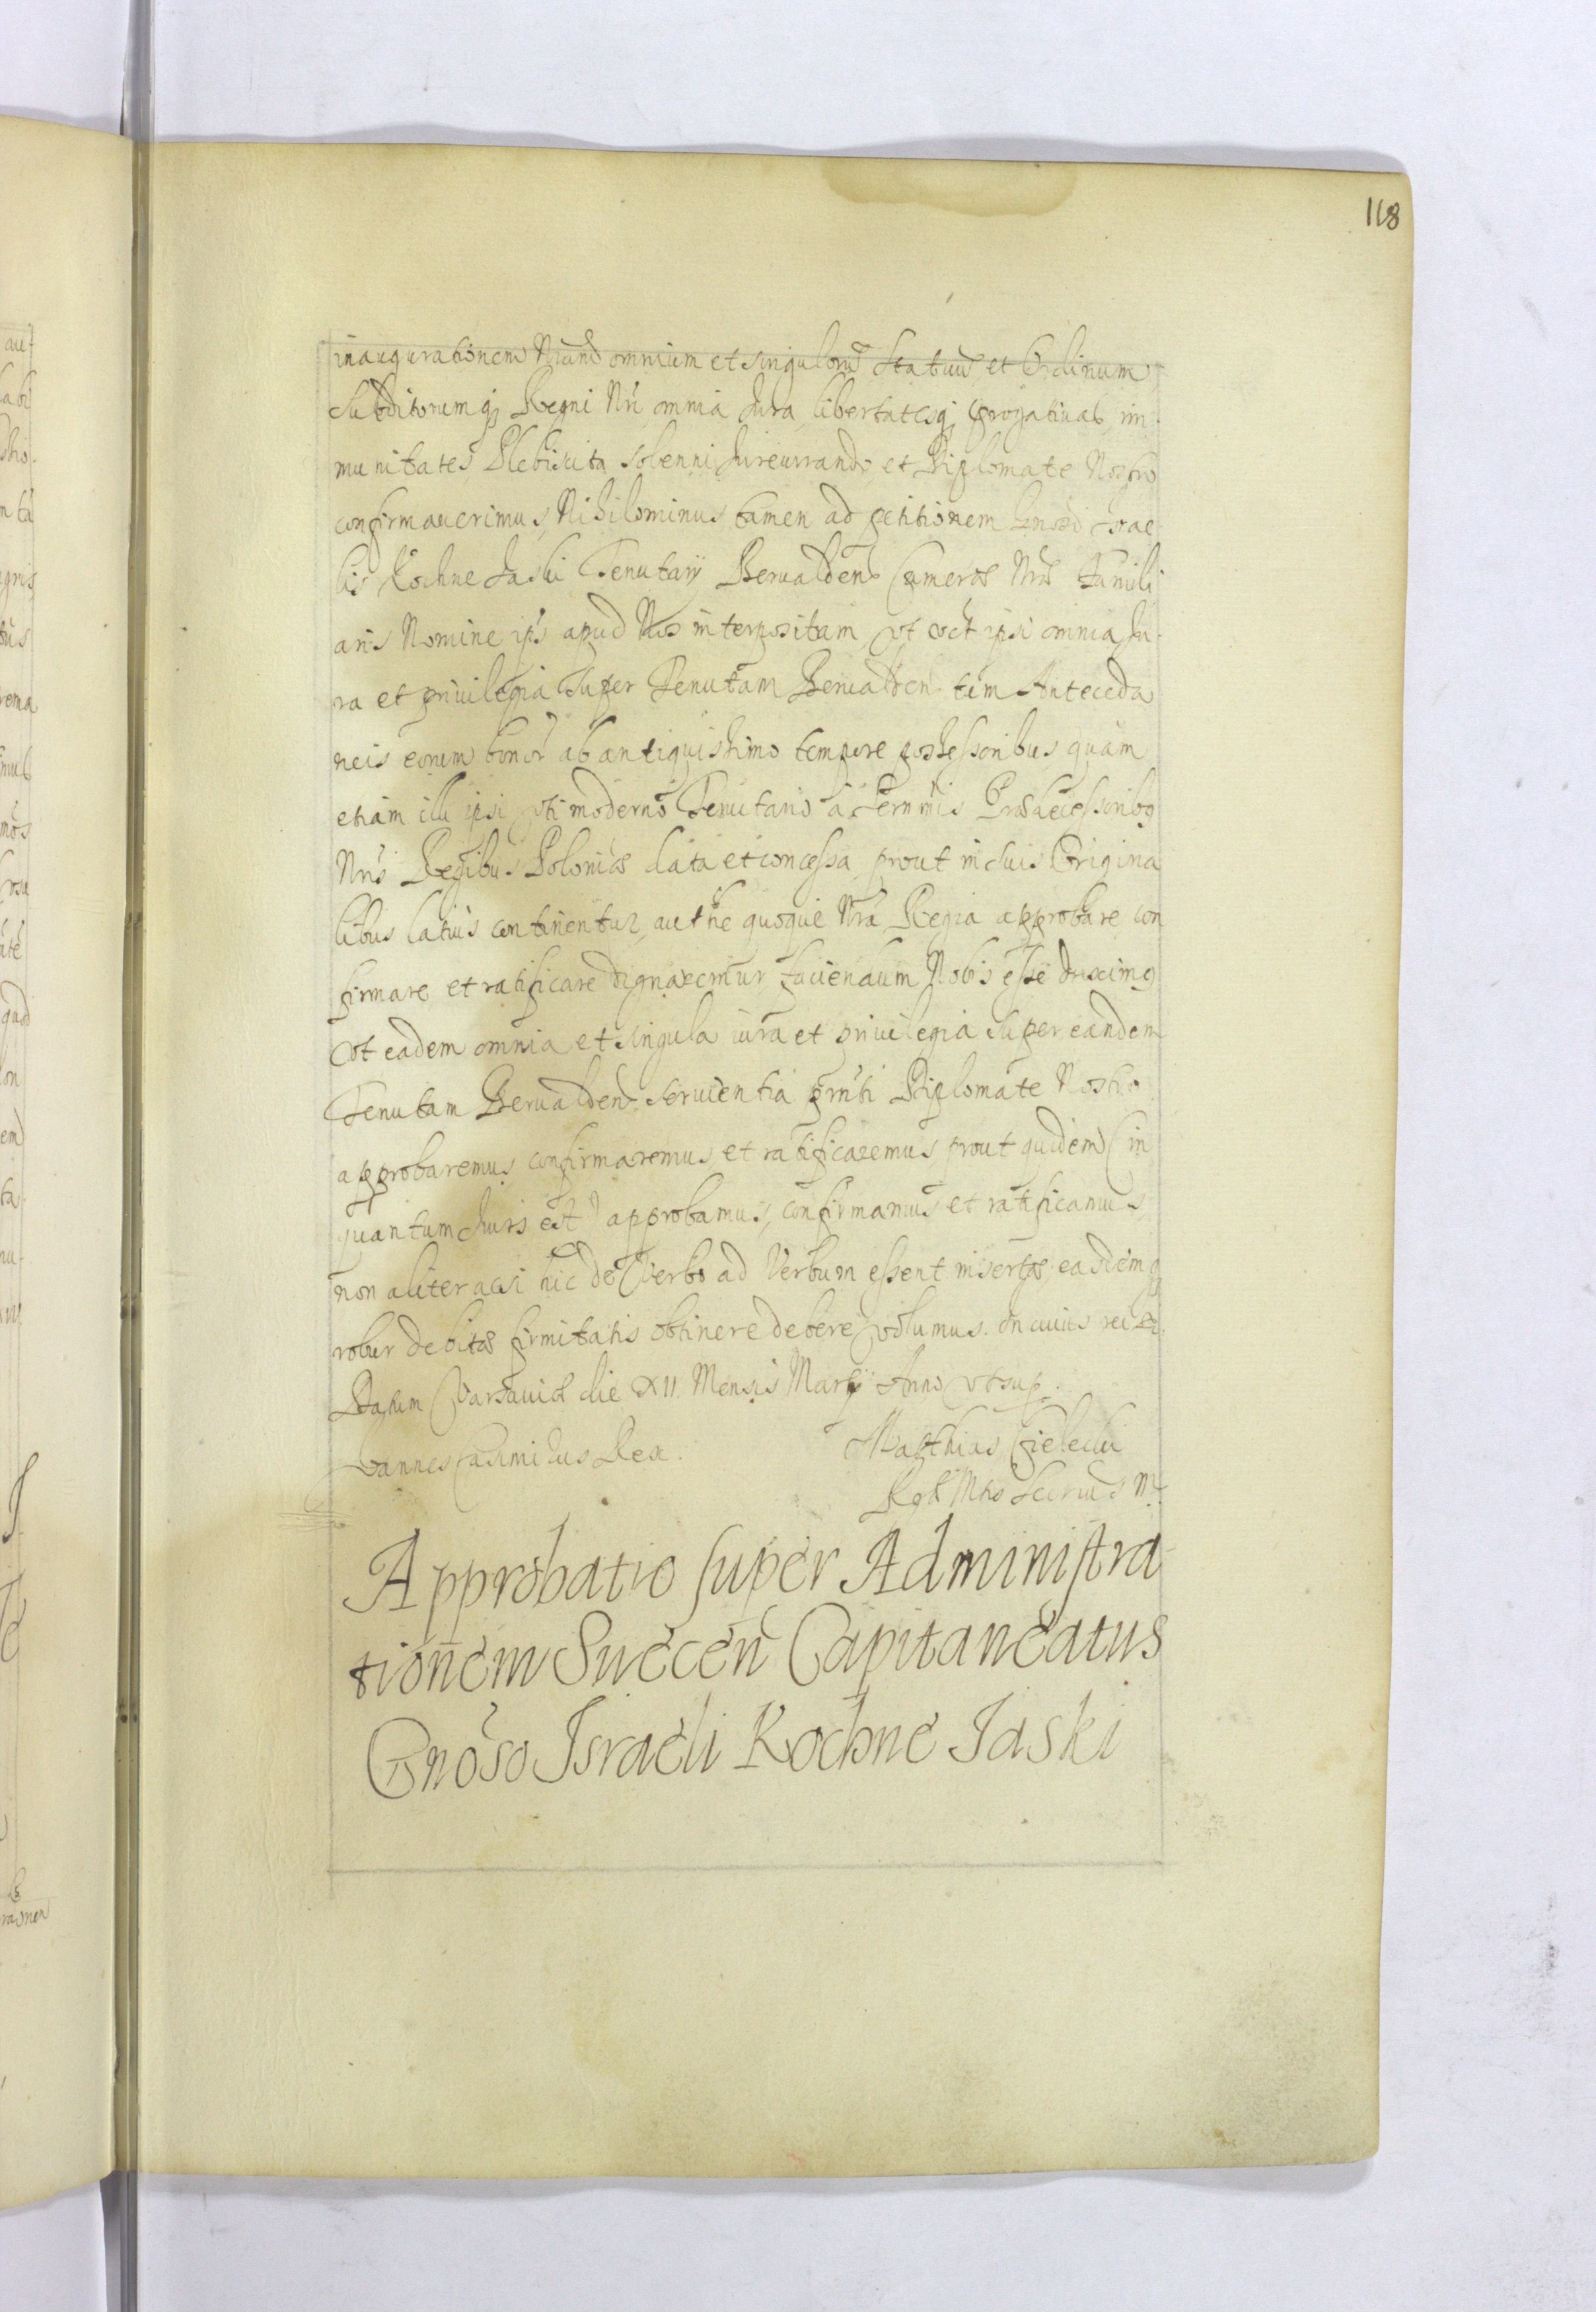 118
inaugurationem Nram omnium et singulorū Statuū et Ordinum
Subditorumq; Regni Nri omnia Jura, libertatesq; prerogativas, im
munitates, Plebiscita solenni Jureiurando, et Diplomate Nostro
confirmaverimus, Nihilominus tamen ad petitionem Gnosi Israe
lis Kochne Jaski Tenutarij Bervalden Cameræ Nræ Famili
aris Nomine ips apud Nos interpositam, vt ipsi omnia Ju
ra et privilegia super Tenutam Bervalden tam Anteceda
neis eorum bonor ab antiquissimo tempore possessoribus, quam
etiam illi ipsi vti moderno Tenutario à Sernmis Prædecessoribq
Nris Regibus Poloniæ data et concessa, prout in suis Origina
libus latius continentur, authe quoque Nra Regia approbare con
firmare et ratificare dignaremur, faciendum Nobis esse duximq
Vt eadem omnia et singula iura et privilegia super eandem
Tenutam Bervalden servientia prnti Diplomate Nostro
approbaremus, confirmaremus, et ratificaremus, prout quidem (in
quantum Juris est) approbamus, confirmamus et ratificamus,
non aliter acsi hic de Verbo ad Verbum essent insertæ, eademq
robur debitæ firmitatis obtinere debere volumus. In cuius rei &.
Datum Varsaviæ die XII. Mensis Martij Anno vt sup.
Joannes Casimirus Rex. Matthias Cielecki
Rgæ Mtis Secrius M.
Approbatio super Administra
tionem Suecen Capitaneatus
Gnoso Israeli Kochne Jaski